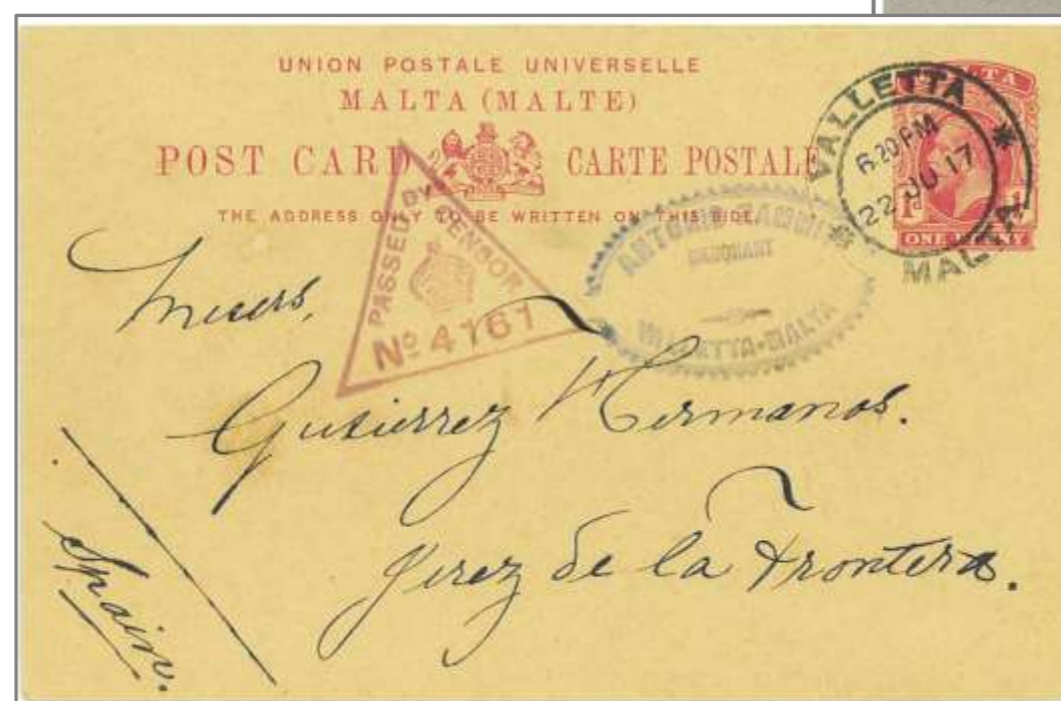 UNION POSTALE UNIVERSELLE
MALTA (MALTE)
POST CARD CARTE POSTALE
THE ADDRESS ONLY TO BE WRITTEN ON THIS SIDE.
MALTA
1d
ONE PENNY
VALLETTA
6 20 PM
22 JU 17
MALTA
PASSED BY CENSOR
No 4161
ANTONIO ZAMMIT
MERCHANT
VALLETTA-MALTA
Messrs,
Gutierrez Hermanos.
Jerez de la Frontera.
Spain.